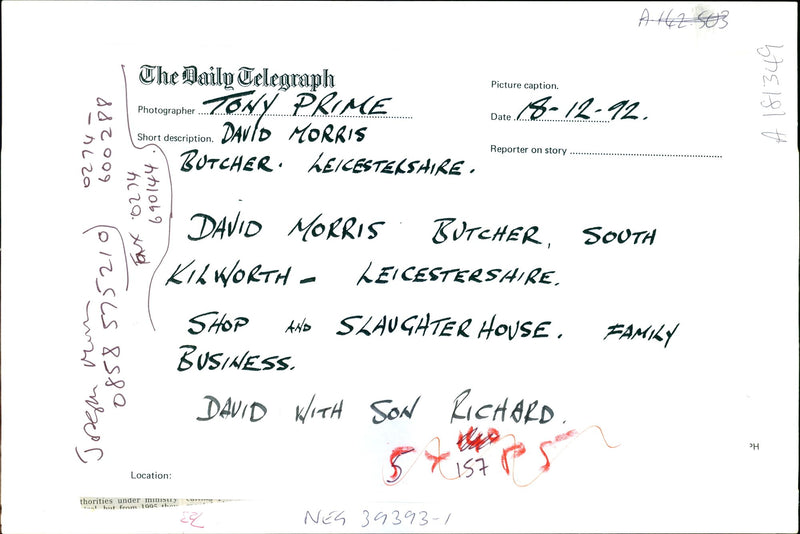 A 142 503
A 181349
The Daily Telegraph
Picture caption.
Photographer TONY PRIME
Date 18-12-92.
Short description. DAVID MORRIS
Reporter on story
BUTCHER. LEICESTERSHIRE.
DAVID MORRIS BUTCHER, SOUTH
KILWORTH - LEICESTERSHIRE.
SHOP AND SLAUGHTERHOUSE. FAMILY
BUSINESS.
DAVID WITH SON RICHARD.
0274
600288
Fax 0274
690144
Joseph
0858 575210
5 x
157
P5
Location:
thorities under ministry
but from 1995
NEG 39393-1